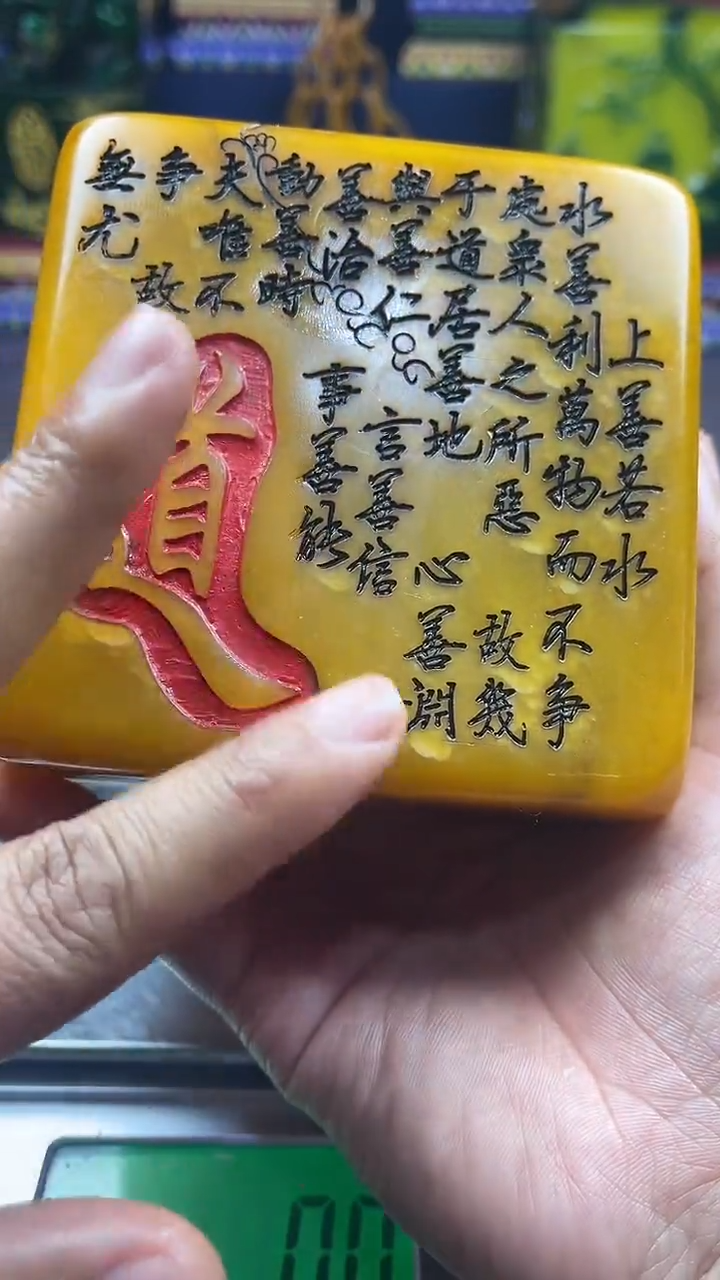 上善若水
水善利萬物而不争
處衆人之所惡故幾
于道居善地心善淵
與善仁言善信
善治事善能
動善時
夫惟不
争故
無尤
道